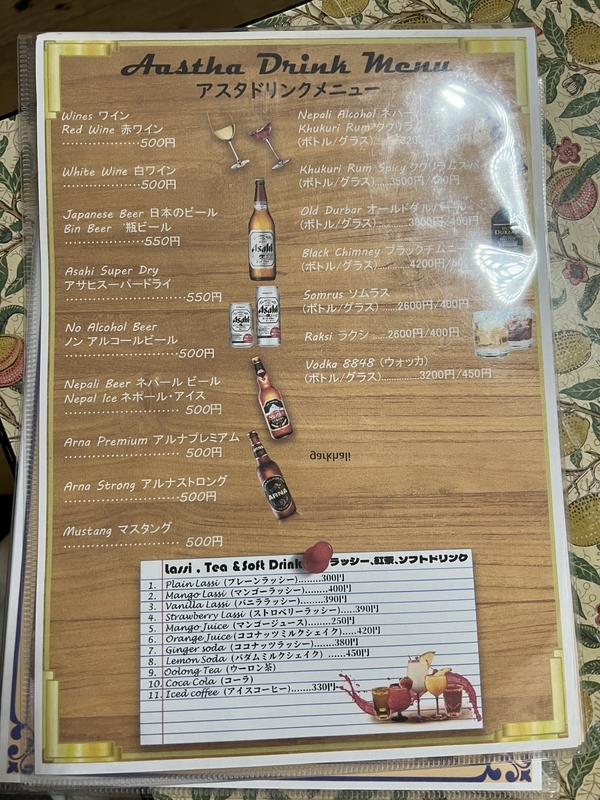 Aastha Drink Menu
アスタドリンクメニュー
Wines ワイン
Red Wine 赤ワイン
......................500円
White Wine 白ワイン
......................500円
Japanese Beer 日本のビール
Bin Beer 瓶ビール
......................550円
Asahi Super Dry
アサヒスーパードライ
..............................550円
No Alcohol Beer
ノン アルコールビール
..............................500円
Nepali Beer ネパール ビール
Nepal Ice ネポール・アイス
............................... 500円
Arna Premium アルナプレミアム
............................... 500円
Arna Strong アルナストロング
..............................500円
Mustang マスタング
............................... 500円
Nepali Alcohol
Khukuri Rum ククリラム
(ボトル/グラス)
Khukuri Rum Spicy ククリラムスパ
(ボトル/グラス).........3500円
Old Durbar オールドダルバール
(ボトル/グラス)
Black Chimney ブラックチムニー
(ボトル/グラス)...........4200円
Somrus ソムラス
(ボトル/グラス)......2600円/400円
Raksi ラクシ ......2600円/400円
Vodka 8848 (ウォッカ)
(ボトル/グラス)..............3200円/450円
garkhali
Asahi
Asahi
Asahi
ARNA
Lassi , Tea & Soft Drink ラッシー、紅茶、ソフトドリンク
1. Plain Lassi (プレーンラッシー)........300円
2. Mango Lassi (マンゴーラッシー)........400円
3. Vanilla Lassi (バニララッシー).......390円
4. Strawberry Lassi (ストロベリーラッシー)......390円
5. Mango Juice (マンゴージュース).......250円
6. Orange Juice (ココナッツミルクシェイク)....420円
7. Ginger soda (ココナッツラッシー)........380円
8. Lemon Soda (バダムミルクシェイク) ......450円
9. Oolong Tea (ウーロン茶)
10. Coca Cola (コーラ)
11. Iced coffee (アイスコーヒー).......330円